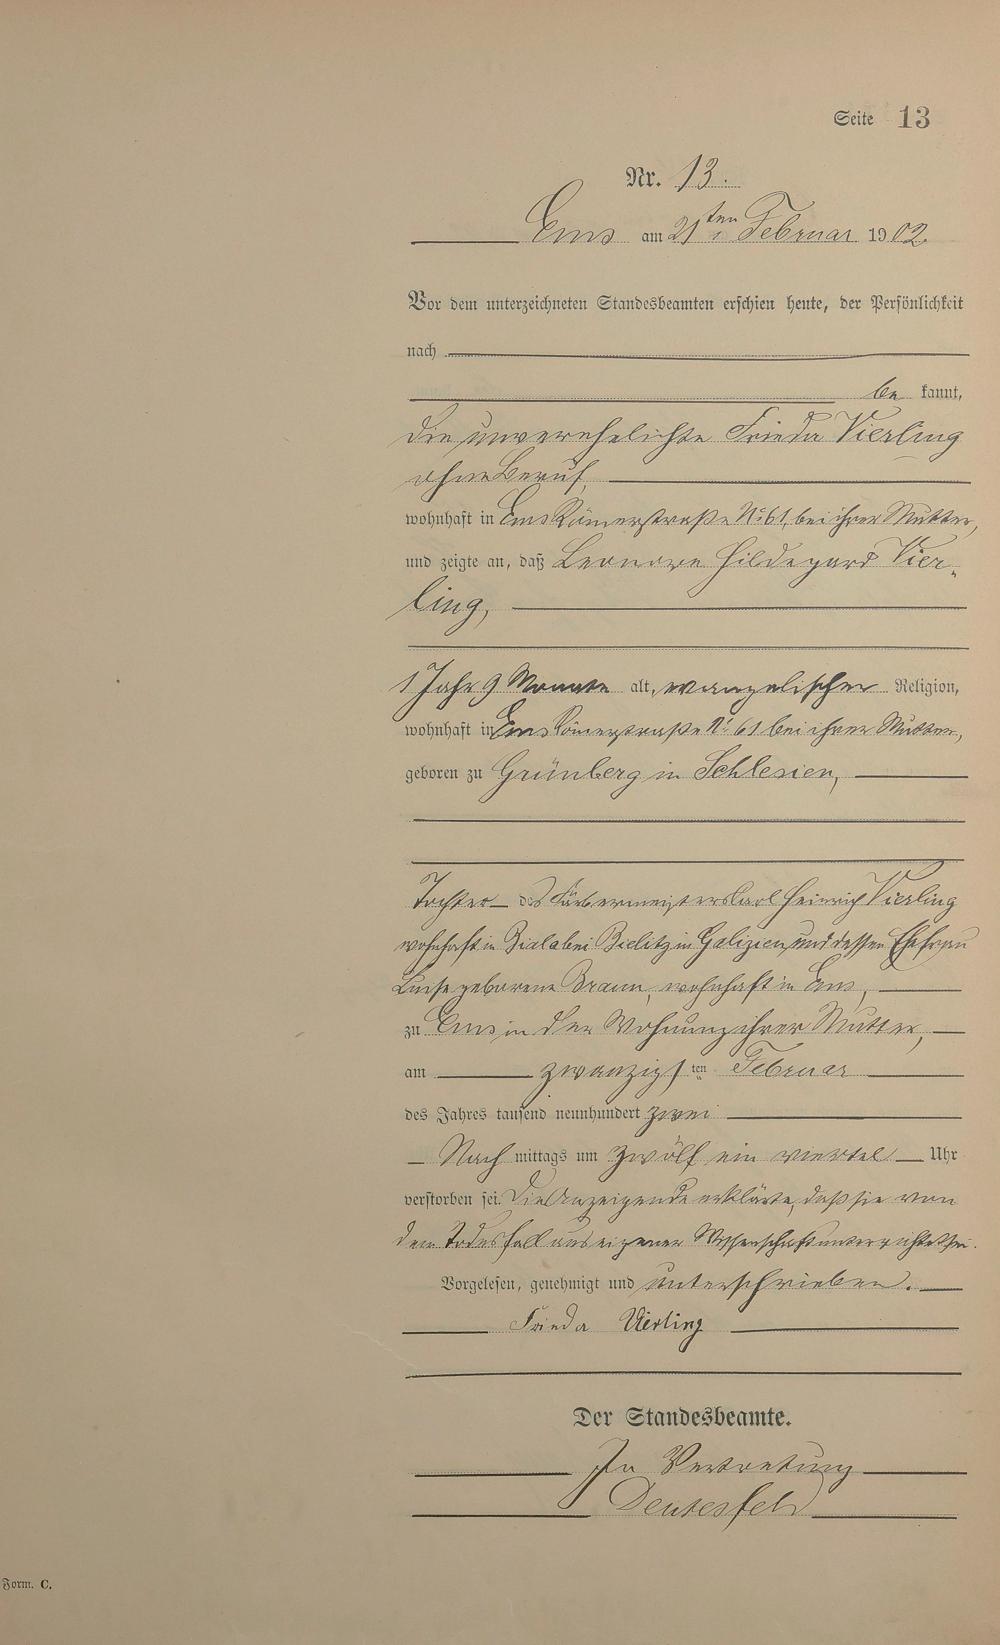 Seite 13
Nr. 13.
Ems am 21ten Februar 1902.
Vor dem unterzeichneten Standesbeamten erschien heute, der Persönlichkeit
nach
be kannt,
die unverehelichte Frieda Vierling
ohne Beruf,
wohnhaft in Ems Römerstraße No 61, bei ihrer Mutter,
und zeigte an, daß Leonore Hildegard Vier-
ling,
1 Jahr 9 Monate alt, evangelischer Religion,
wohnhaft in Ems Römerstraße No 61 bei ihrer Mutter,
geboren zu Grünberg in Schlesien,
Tochter des Färbermeisters Carl Heinrich Vierling
wohnhaft in Biala bei Bielitz in Galizien, und dessen Ehefrau
Luise geborene Braun, wohnhaft in Ems,
zu Ems in der Wohnung ihrer Mutter,
am zwanzigsten Februar
des Jahres tausend neunhundert zwei
Nach mittags um zwölf ein viertel Uhr
verstorben sei. Die Anzeigende erklärte, daß sie von
dem Todesfall aus eigener Wissenschaft unterrichtet sei.
Vorgelesen, genehmigt und unterschrieben.
Frieda Vierling
Der Standesbeamte.
In Vertretung
Deutesfeld
Form. C.